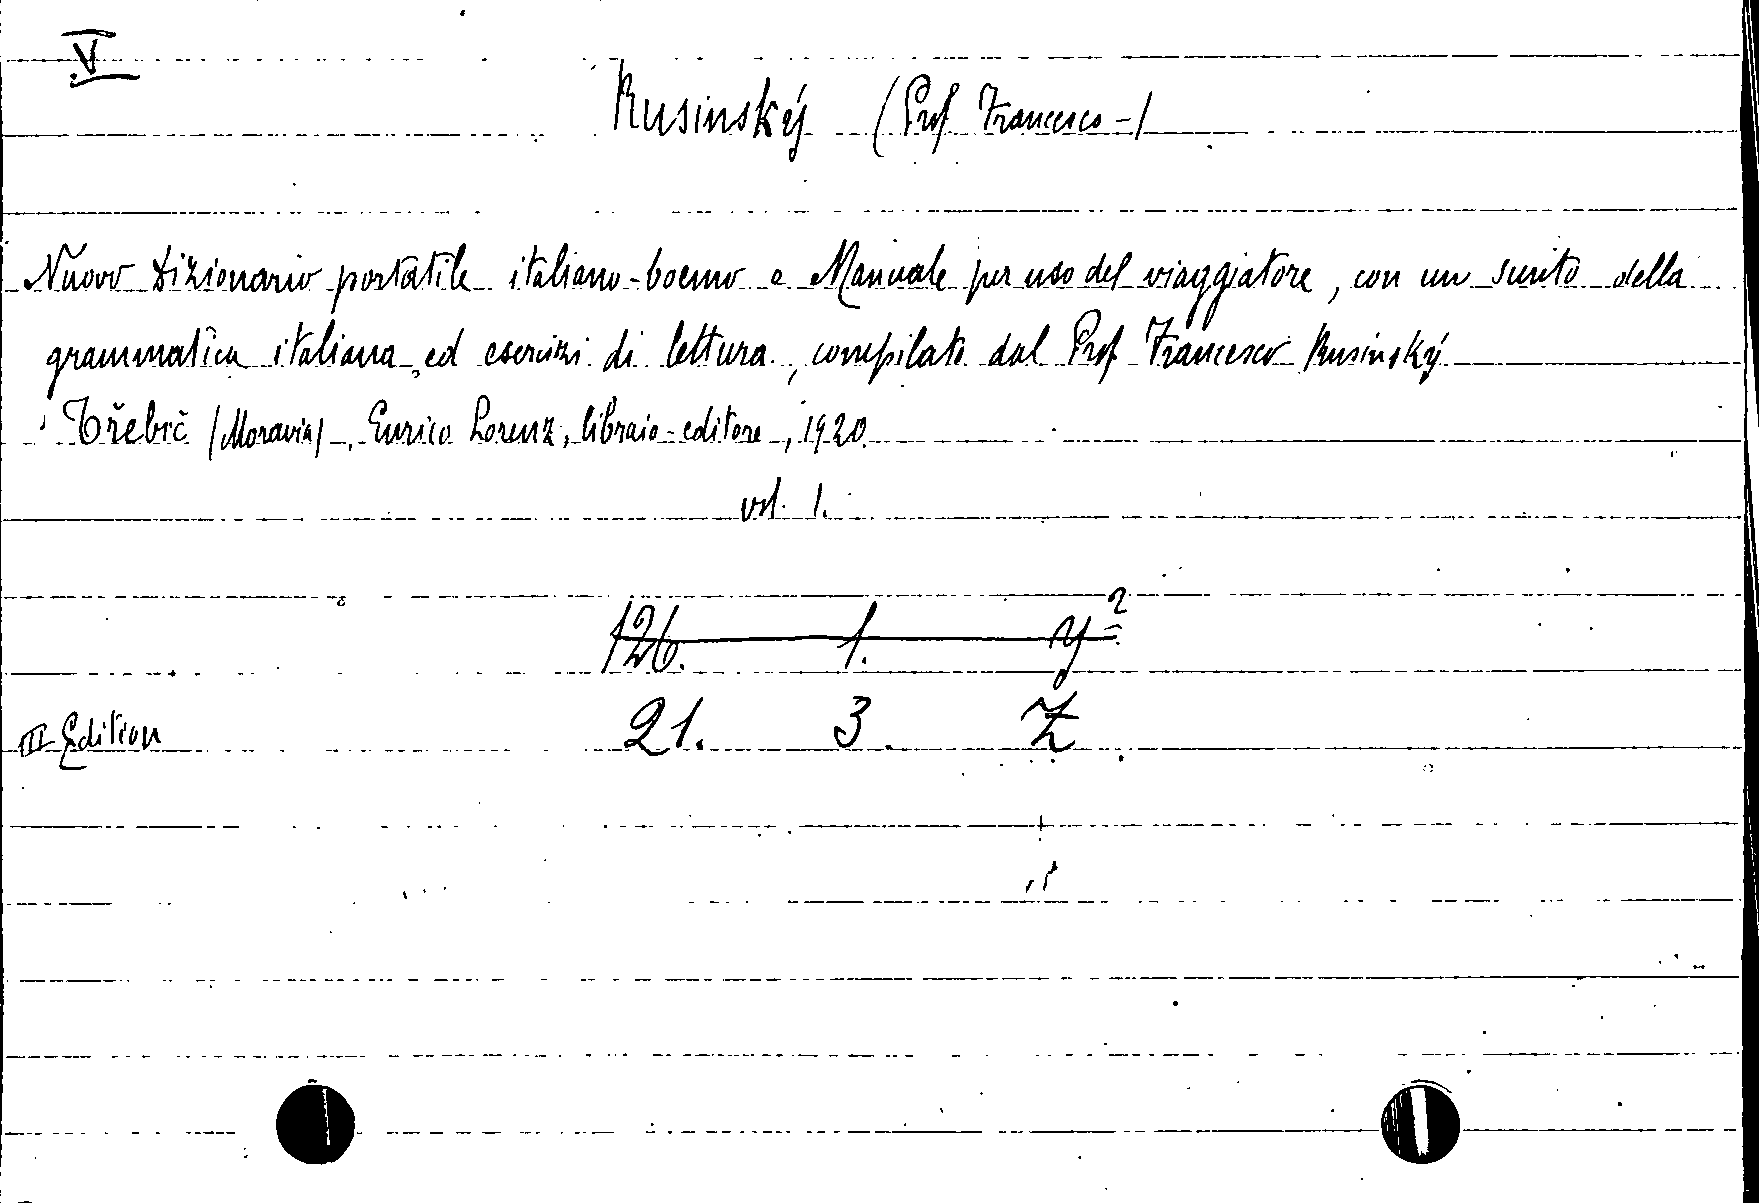 V
Rusinský (Prof Francesco -)
Nuovo Dizionario portatile italiano-boemo e Manuale per uso del viaggiatore, con un sunto della
grammatica italiana, ed esercizi di lettura, compilato dal Prof Francesco Rusinský
Třebíč (Moravia), Enrico Lorenz, libraio-editore, 1920.
vol. 1.
126. 1. y²
III Edition 21. 3. Z